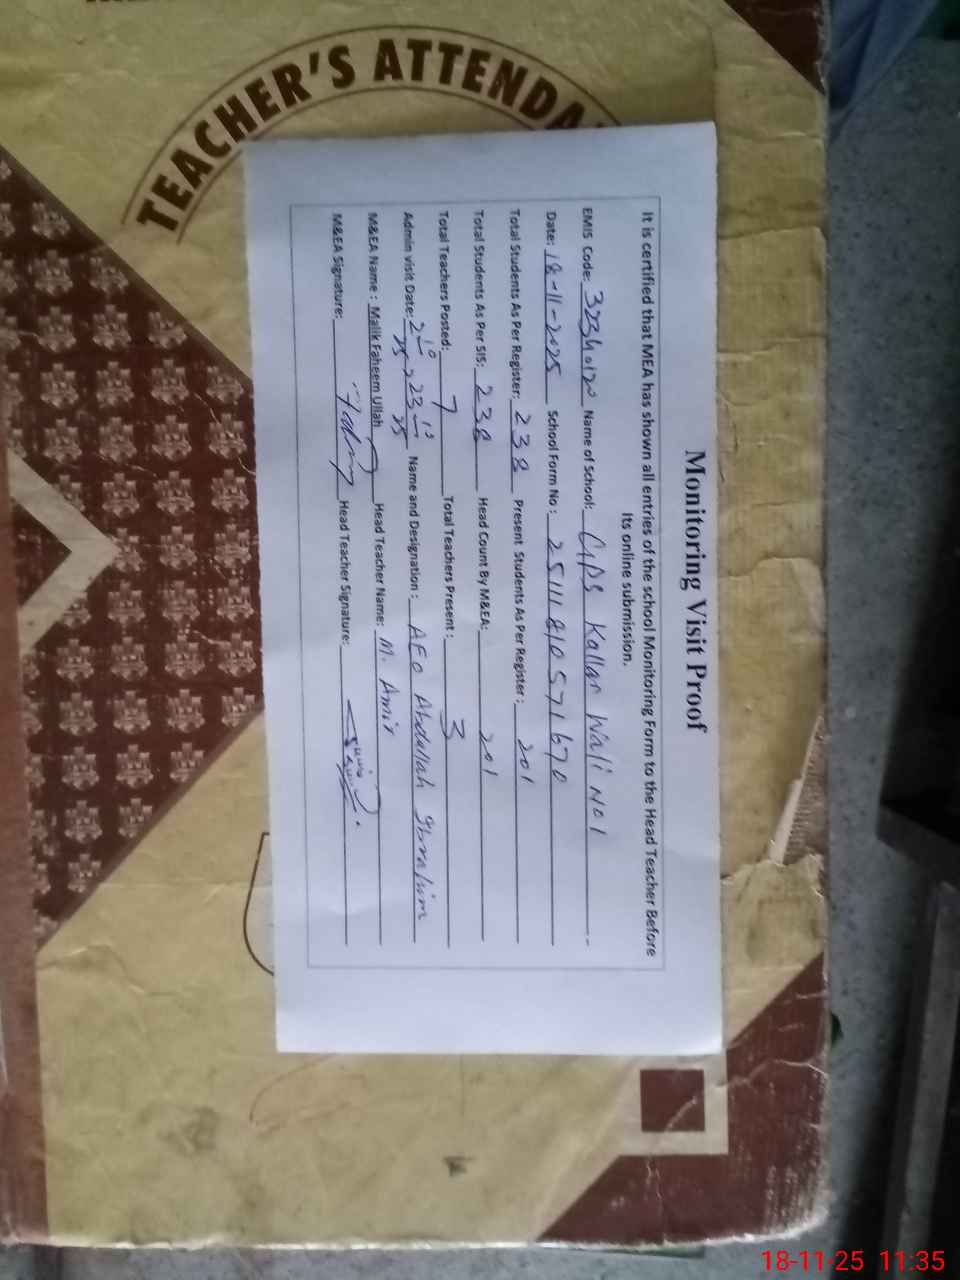 TEACHER'S ATTENDA
Monitoring Visit Proof
It is certified that MEA has shown all entries of the school Monitoring Form to the Head Teacher Before
Its online submission.
EMIS Code: Name of School: GPS Kallar Wali No 1
Date: 18-11-2025 School Form No: 25111810571670
Total Students As Per Register: 238 Present Students As Per Register: 201
Total Students As Per SIS: 238 Head Count By M&EA: 201
Total Teachers Posted: 7 Total Teachers Present: 3
Admin visit Date: Name and Designation: AEO Abdullah Ibrahim
M&EA Name: Malik Faheem Ullah Head Teacher Name: M. Amir
M&EA Signature: Head Teacher Signature:
18-11-25 11:35